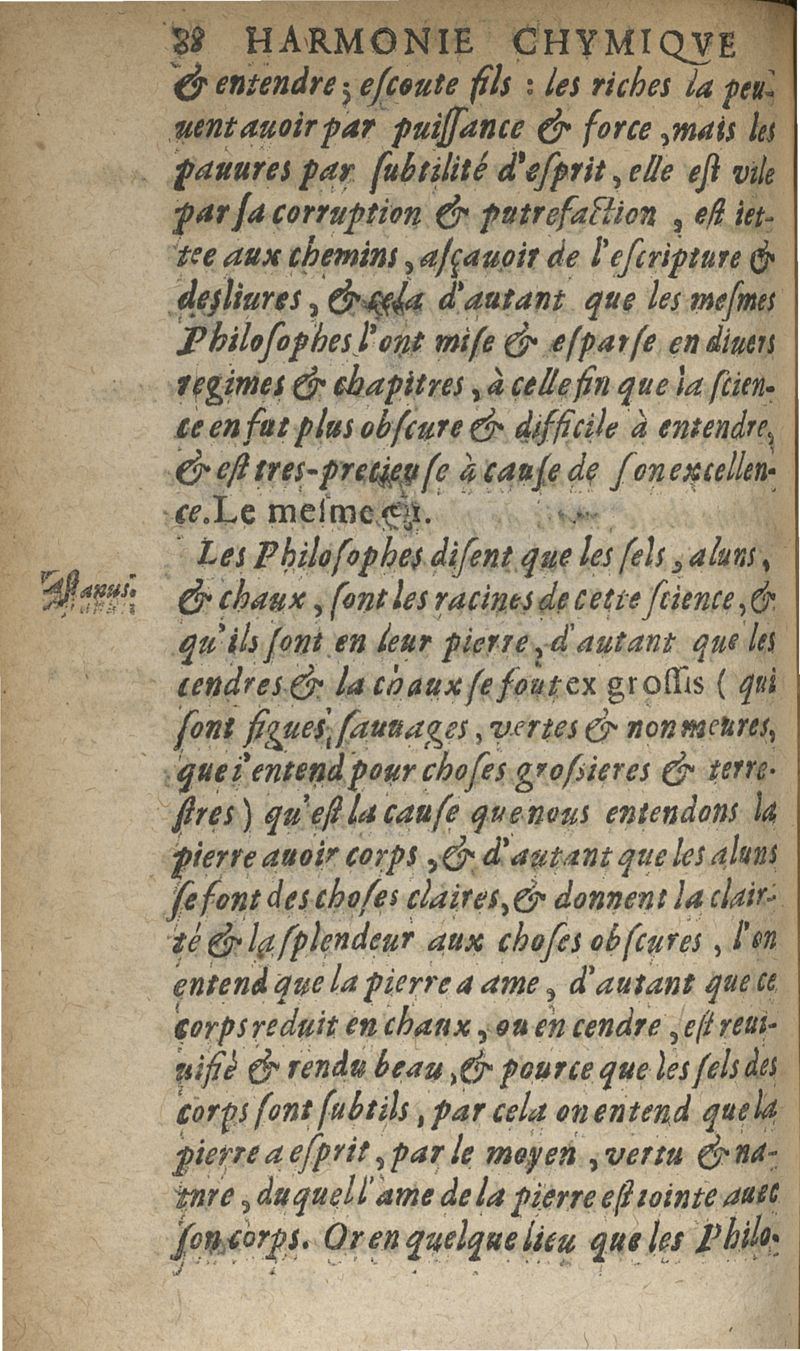 88 HARMONIE CHYMIQVE
& entendre; eſcoute fils : les riches la peu-
uent auoir par puiſſance & force, mais les
pauures par ſubtilité d'eſprit, elle eſt vile
par ſa corruption & putrefaction, eſt iet-
tee aux chemins, aſçauoir de l'eſcripture &
desliures, & cela d'autant que les meſmes
Philoſophes l'ont miſe & eſparſe en diuers
regimes & chapitres, à celle fin que la ſcien-
ce en fut plus obſcure & difficile à entendre,
& eſt tres-precieuſe à cauſe de ſon excellen-
ce. Le meſme
Les Philoſophes diſent que les ſels, aluns,
Aſtanus.
& chaux, ſont les racines de cette ſcience, &
qu'ils ſont en leur pierre, d'autant que les
cendres & la chaux ſe font ex groſſis ( qui
ſont figues, ſauuages, vertes & non meures,
que i'entend pour choſes groſsieres & terre-
ſtres) qu'eſt la cauſe que nous entendons la
pierre auoir corps, & d'autant que les aluns
ſe font des choſes claires, & donnent la clair-
té & la ſplendeur aux choſes obſcures, l'on
entend que la pierre a ame, d'autant que ce
corps reduit en chaux, ou en cendre, eſt reui-
uifiè & rendu beau, & pource que les ſels des
corps ſont ſubtils, par cela on entend que la
pierre a eſprit, par le moyen, vertu & na-
tnre, duquel l'ame de la pierre eſt iointe auec
ſon corps. Or en quelque lieu que les Philo-